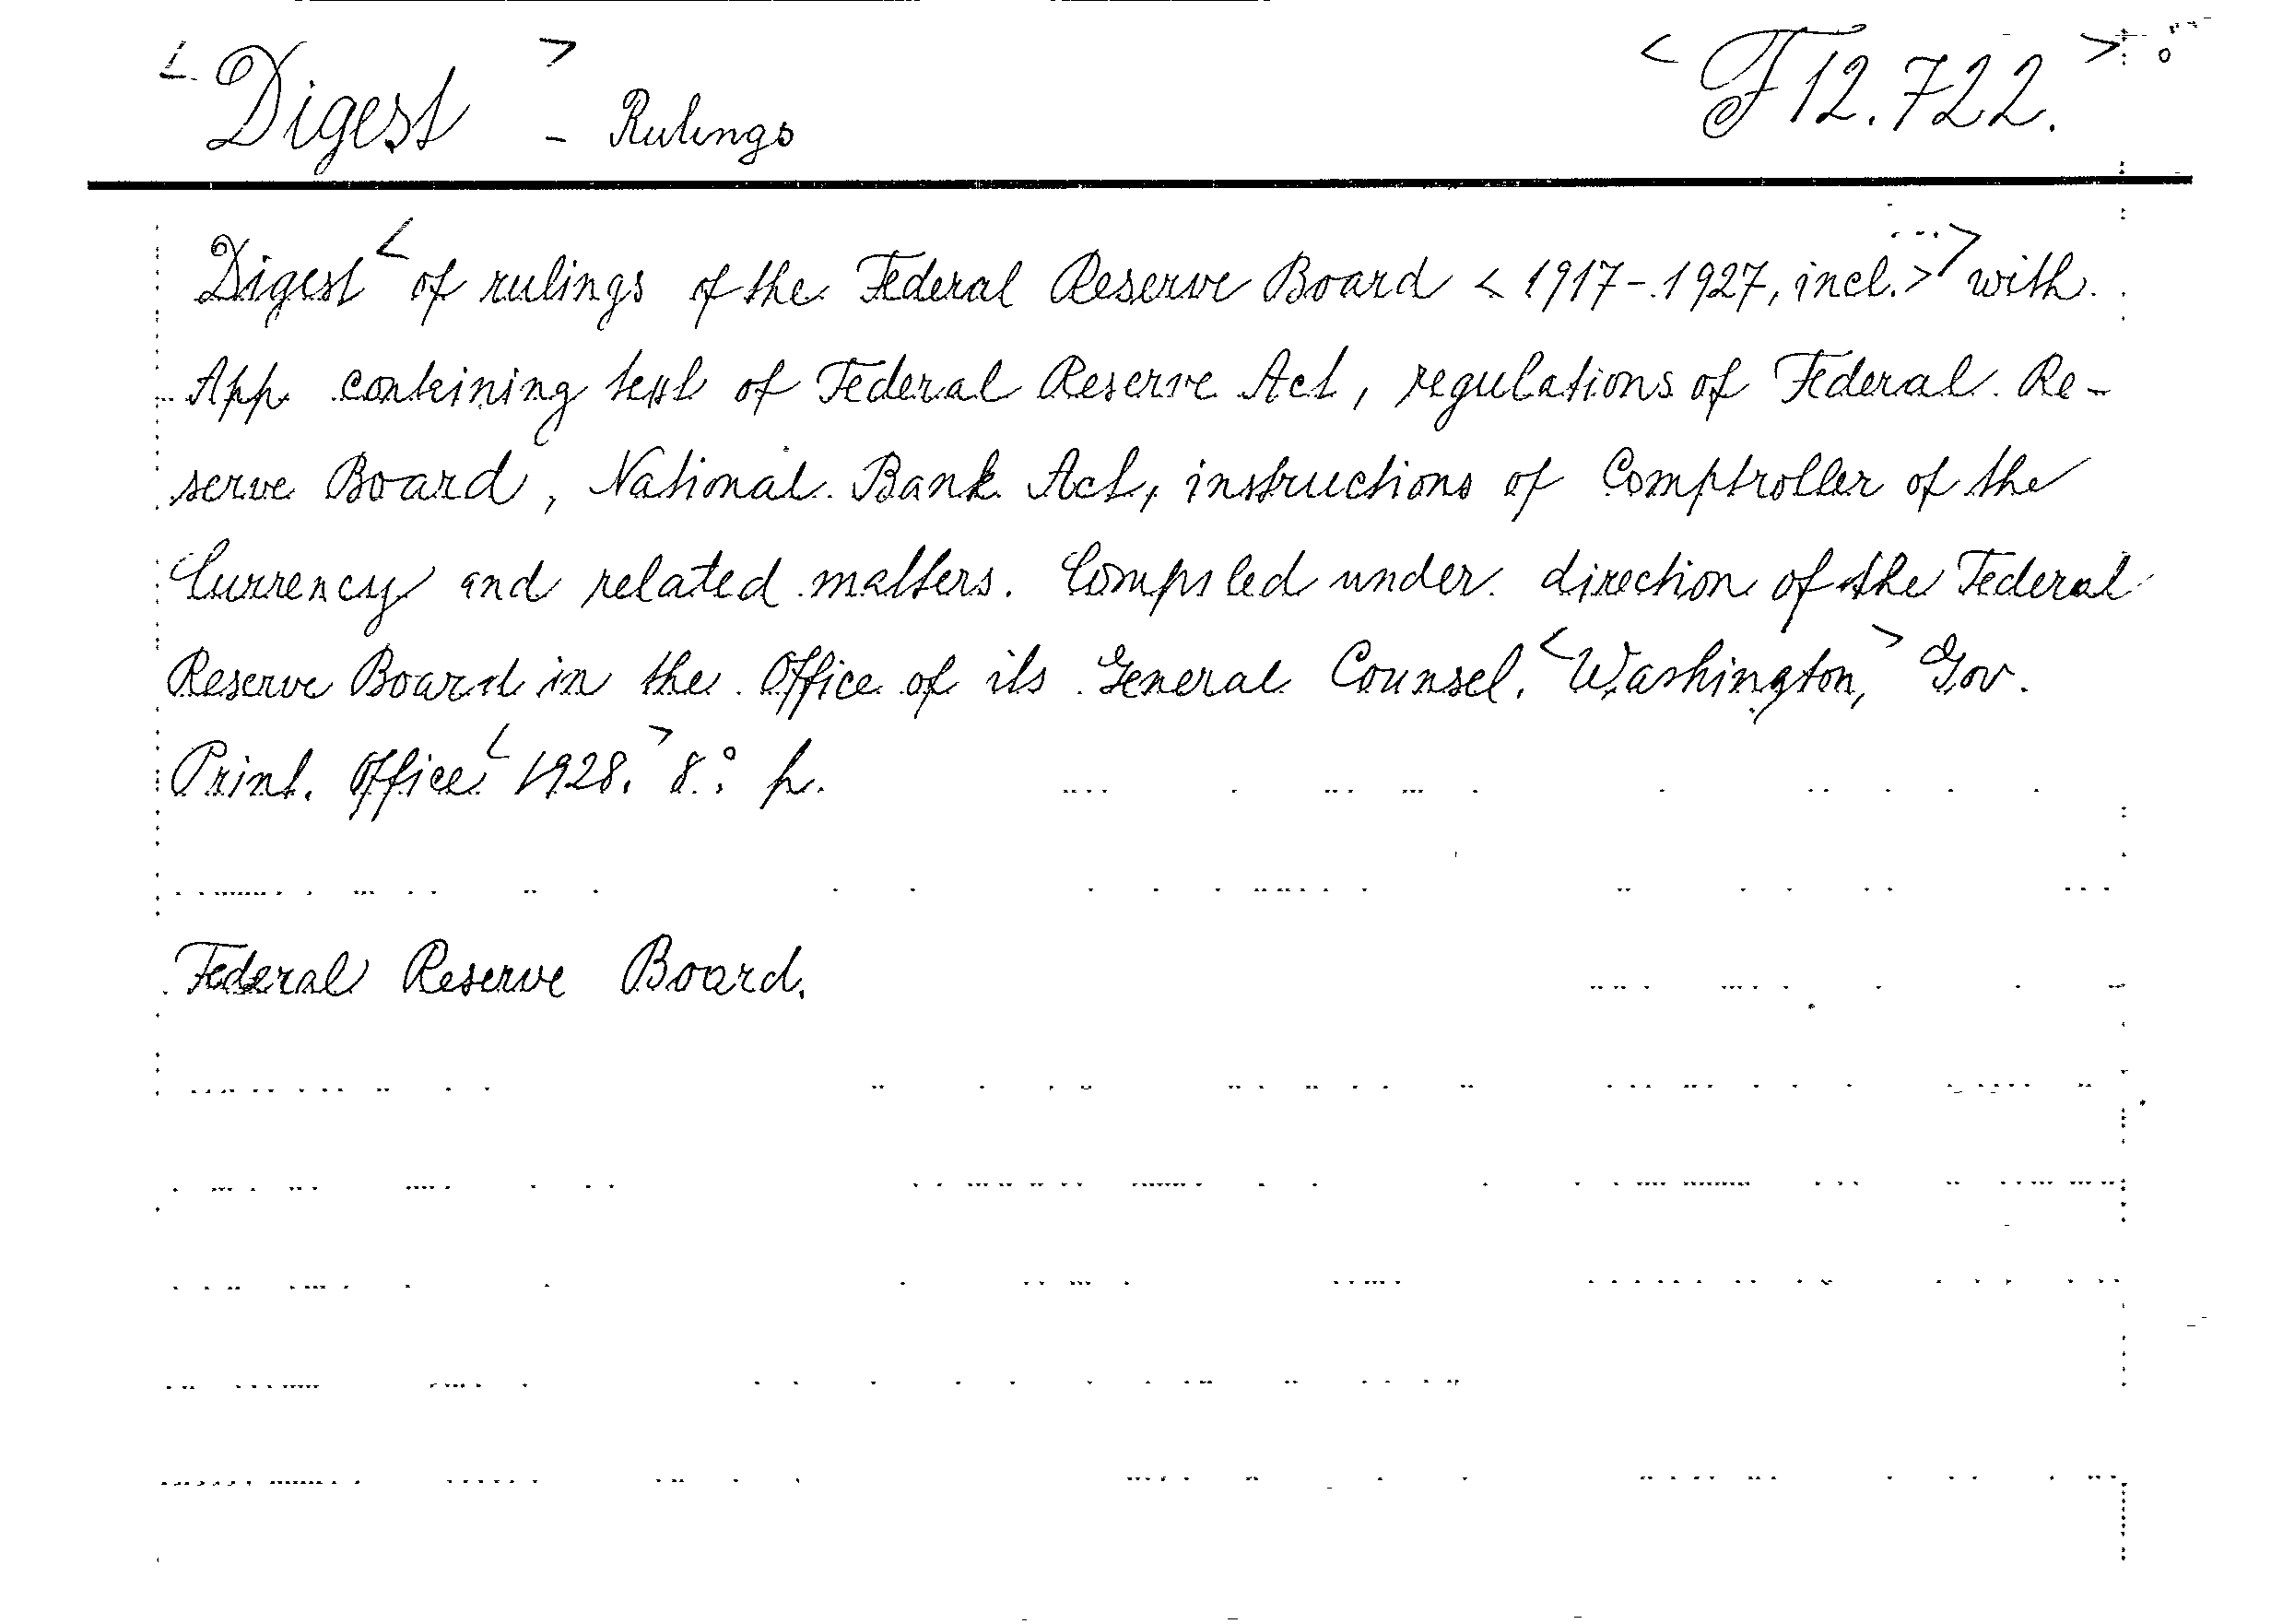 < Digest > - Rulings < F 12.722. >
Digest < of rulings of the Federal Reserve Board < 1917-1927, incl. > > with
App. contining text of Federal Reserve Act, regulations of Federal Re-
serve Board, National Bank Act, instructions of Comptroller of the
Currency and related matters. Compiled under direction of the Federal
Reserve Board in the Office of its General Counsel. < Washington, > Gov.
Print. Office < 1928. > 8.° p.
Federal Reserve Board.